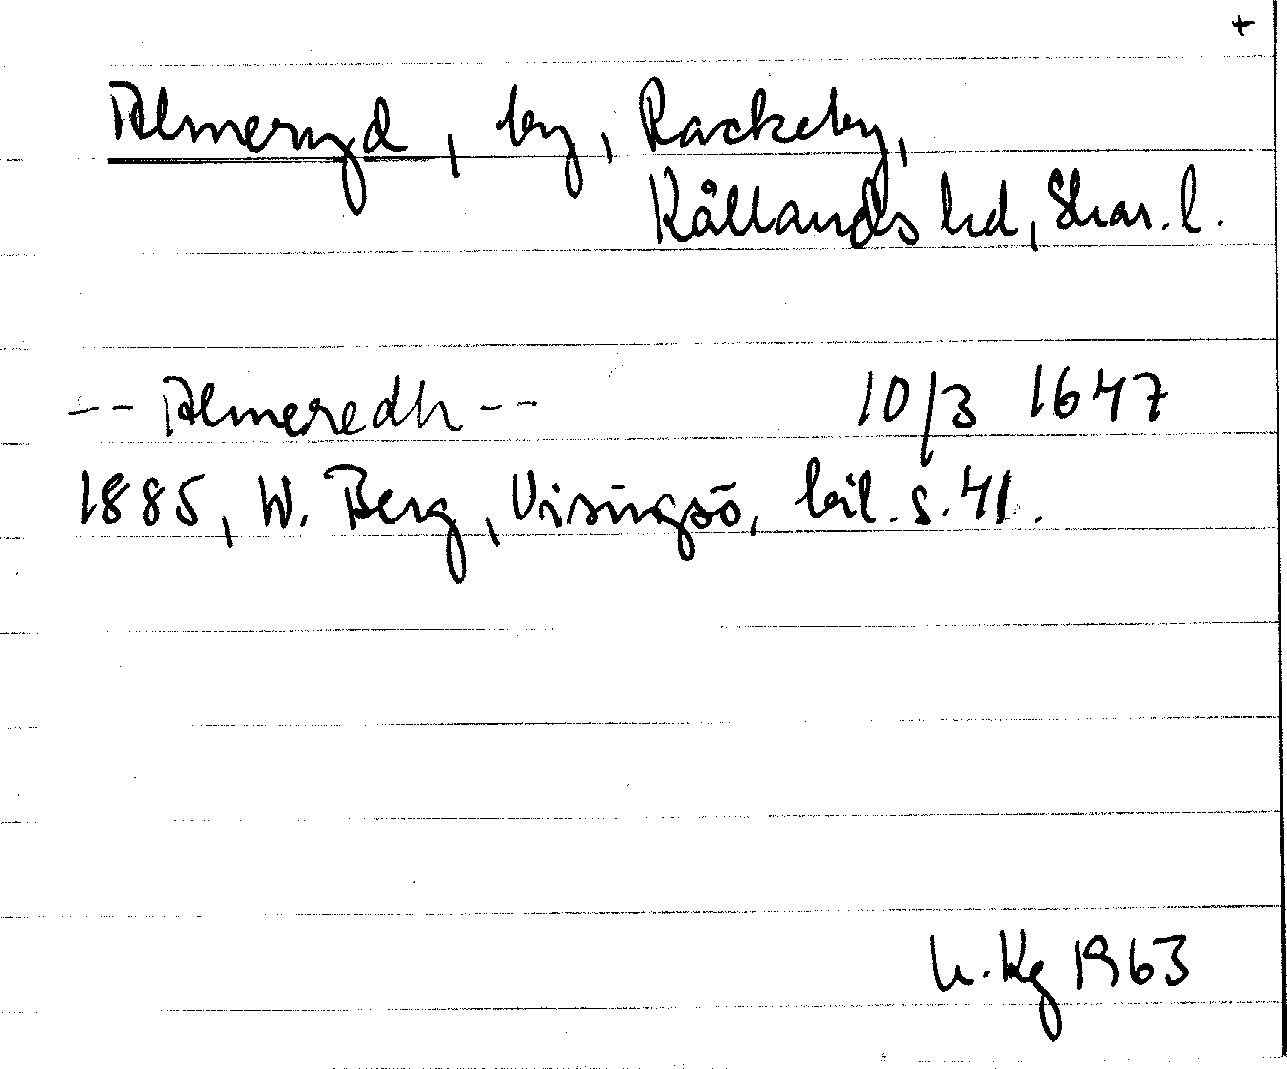 +
Almeryd, by, Rackeby,
Kållands hd, Skar. l.
-- Almeredh -- 10/3 1647
1885, W. Berg, Visingsö, bil. s. 41.
Kg 1963